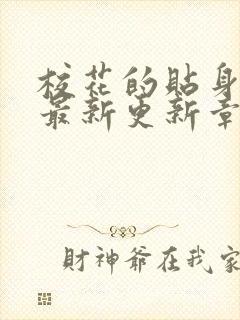 校花的貼身
最新更新章
財神爺在我家